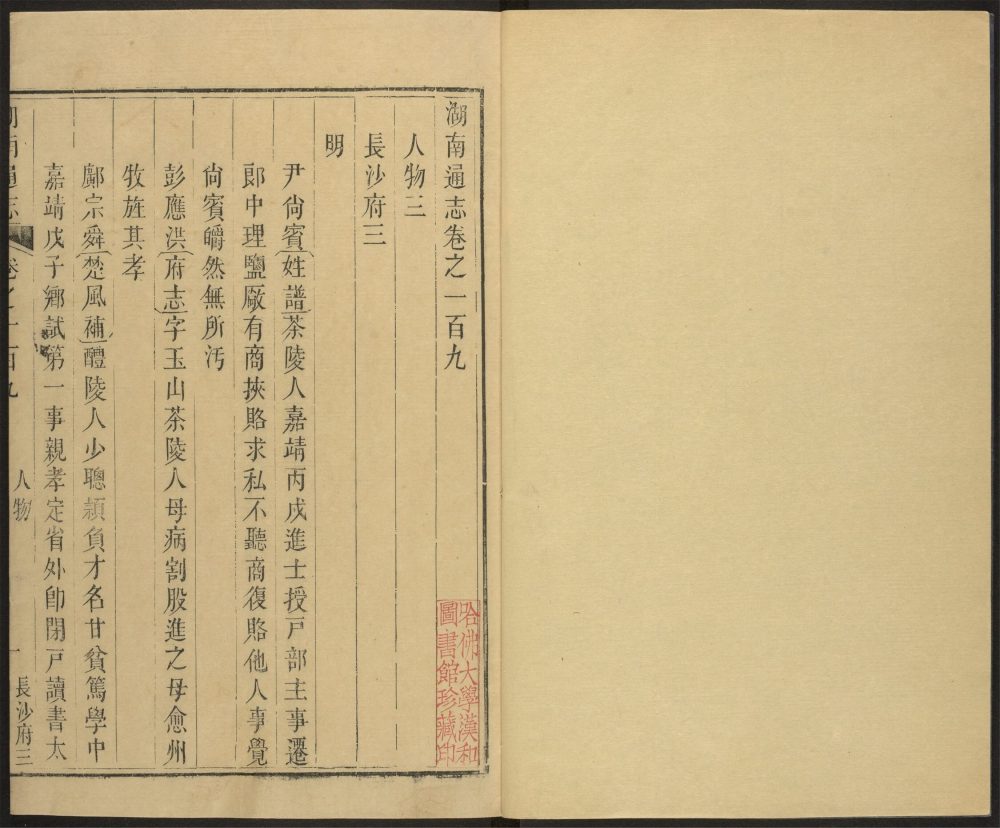 湖南通志卷之一百九
人物三
長沙府三
明
尹尙賓姓譜茶陵人嘉靖丙戌進士授戸部主事遷
郎中理鹽厰有商挾賂求私不聽商復賂他人事覺
尙賓皭然無所汚
彭應洪府志字玉山茶陵人母病割股進之母愈州
牧旌其孝
鄺宗舜楚風補醴陵人少聰頴負才名甘貧篤學中
嘉靖戊子鄉試第一事親孝定省外卽閉戸讀書太
湖南通志 卷之一百九 人物 一 長沙府三
哈佛大學漢和
圖書館珍藏印